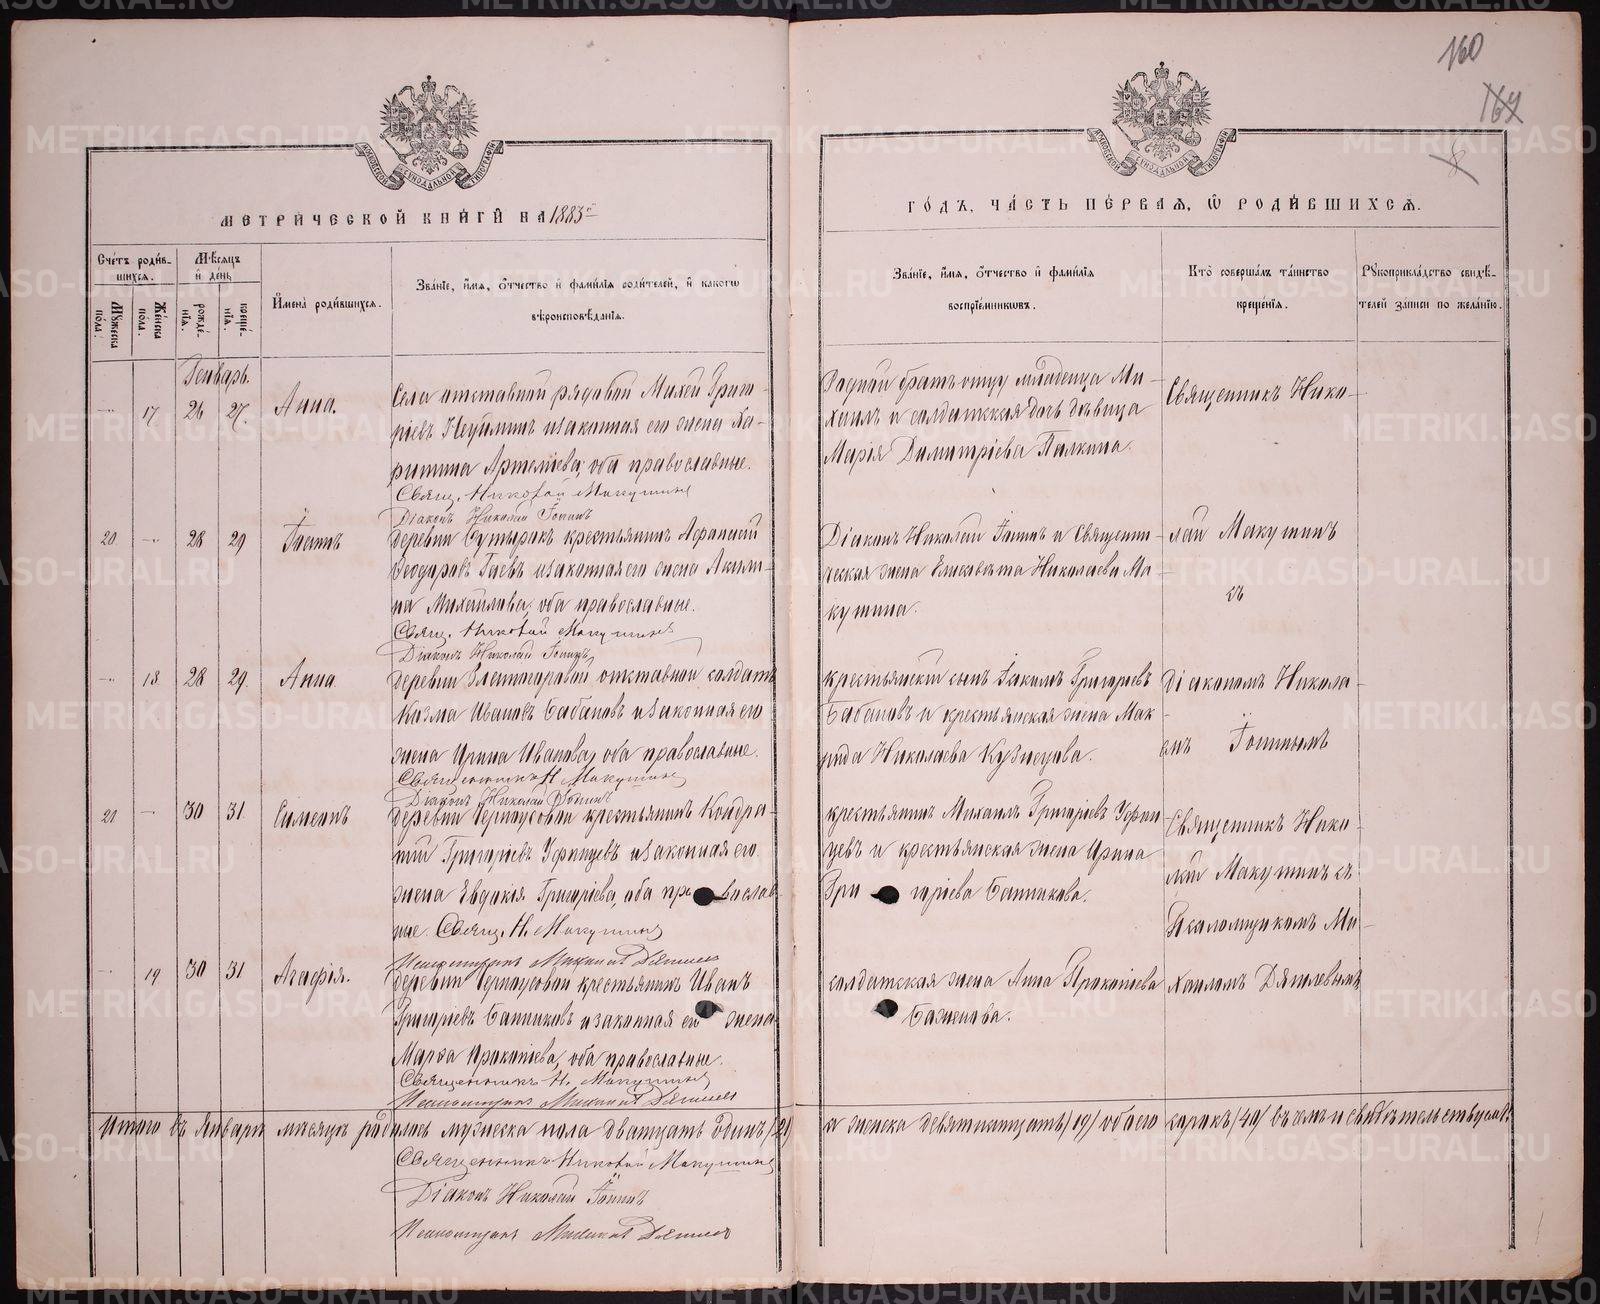 160
164
8
МЕТРИЧЕСКОЙ КНИГИ НА 1883й
ГОДЪ, ЧАСТЬ ПЕРВАЯ, Ѡ РОДИВШИХСЯ.
Счетъ родившихся.
Мѣсяцъ и день
Мужеска пола.
Женска пола.
рождения.
крещения.
Имена родившихся.
Званіе, имя, отчество и фамилія родителей, и какогѡ вѣроисповѣданія.
Званіе, имя, отчество и фамилія воспріемниковъ.
Кто совершалъ таинство крещенія.
Рукоприкладство свидѣтелей записи по желанію.
Генварь.
17 26 27. Анна.
Села отставной рядовой Михей Григорьевъ и законная его жена Харитина Артеміева, оба православные.
Свящ. Николай Макушинъ
Діаконъ Николай Іонинъ
Родной братъ отцу младенца Михаилъ и солдатская дочь дѣвица
Марія Димитріева Палкина.
Священникъ Нико-
20 28 29
деревни крестьянинъ Афанасий
Ѳеодоровъ Гаевъ и законная его жена Акили-
на Михайлова, оба православные.
Свящ. Николай Макушинъ
Діаконъ Николай Іонинъ
Діаконъ Николай Іонинъ и Священни-
ческая жена Елисавета Николаева Ма-
кушина.
лай Макушинъ
съ
18. 28 29. Анна
деревни отставной солдатъ
Козма Ивановъ Бабановъ и законная его
жена Ирина Иванова, оба православные.
Священникъ Н Макушинъ
Діаконъ Николай Іонинъ
крестьянскій сынъ Іакимъ Григорьевъ
Бабановъ и крестьянская жена Мак-
рида Николаева Кузнецова.
Діакономъ Никола-
емъ Іонинымъ
21 30 31 Симеонъ
деревни Черноусовой крестьянинъ Кондра-
тій Григорьевъ Уфинцевъ и законная его
жена Евдокія Григорьева, оба православ-
ные. Свящ. Н. Макушинъ
Псаломщикъ Михаилъ Дягилевъ
крестьянинъ Михаилъ Григорьевъ Уфин-
цевъ и крестьянская жена Ирина
Григоріева Банникова.
Священникъ Нико-
лай Макушинъ съ
Псаломщикомъ Ми-
19 30 31 Агафія.
деревни Черноусовой крестьянинъ Иванъ
Григорьевъ Банниковъ и законная его жена
Марѳа Прокопіева, оба православные.
Священникъ Н. Макушинъ
Псаломщикъ Михаилъ Дягилевъ
солдатская жена Анна Прокопіева
Баженова.
хаиломъ Дягилевымъ
Итого въ Январѣ мѣсяцѣ родилось мужеска пола двадцать одинъ /21/ и женска девятнадцать /19/ обоего сорокъ /40/ въ чемъ и свидѣтельствуемъ:
Священникъ Николай Макушинъ
Діаконъ Николай Іонинъ
Псаломщикъ Михаилъ Дягилевъ
METRIKI.GASO-URAL.RU